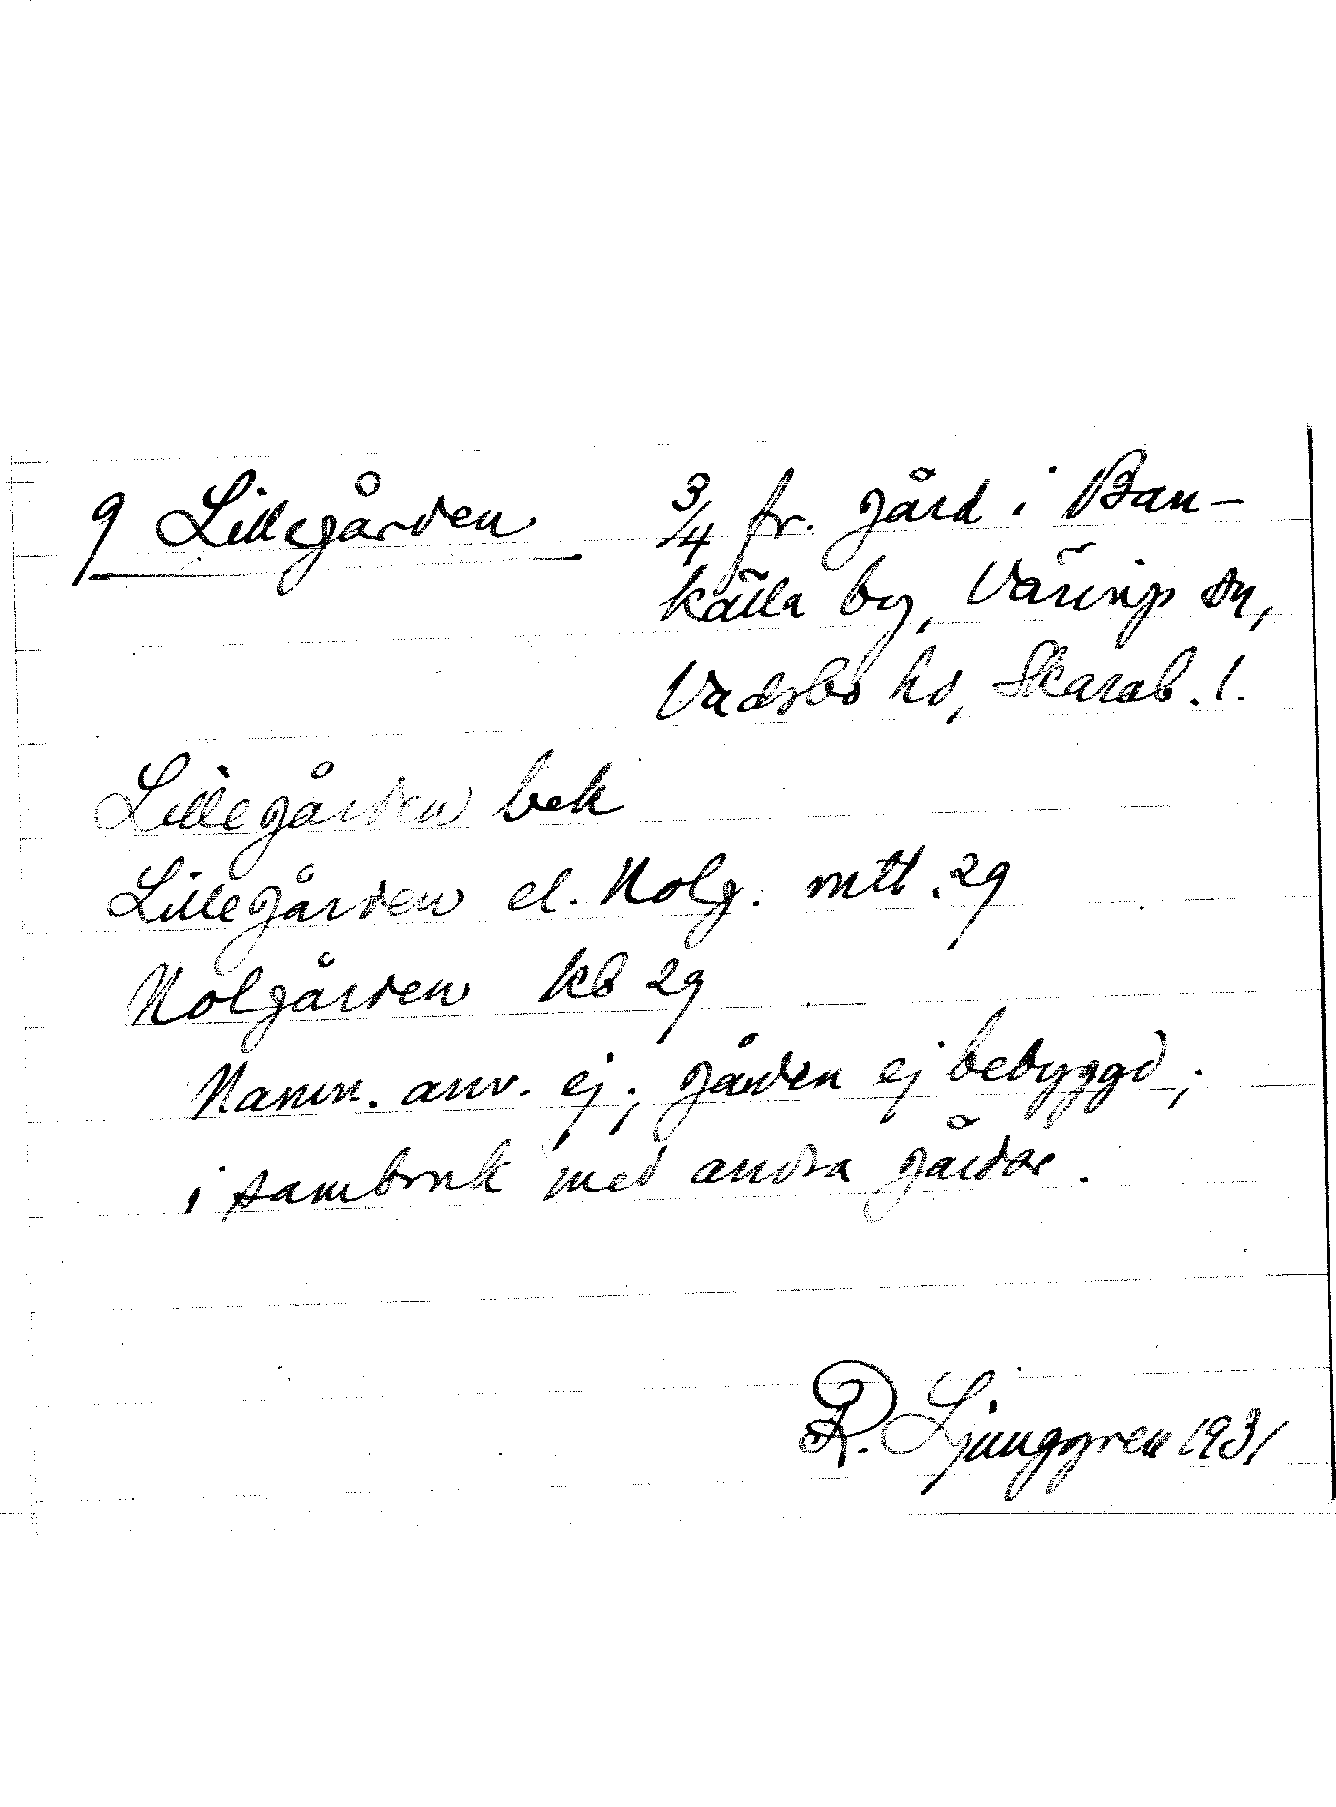 9 Lillegården
3/4 fr. gård i Ban-
källa by, Värings sn,
Vadsbo hd, Skarab. l.
Lillegården bek
Lillegården el. Nolg. mtl. 29
Nolgården kb 29
Namn. anv. ej; gården ej bebyggd,
i sambruk med andra gårdar.
R. Ljunggren 1931